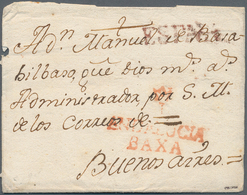 A Dn. Manuel de Basa
ESPAÑA
bilbaso, que Dios m.s a.s
Administrador por S. M.
de los Correos de
ANDALUCIA
BAXA
Buenos aires.